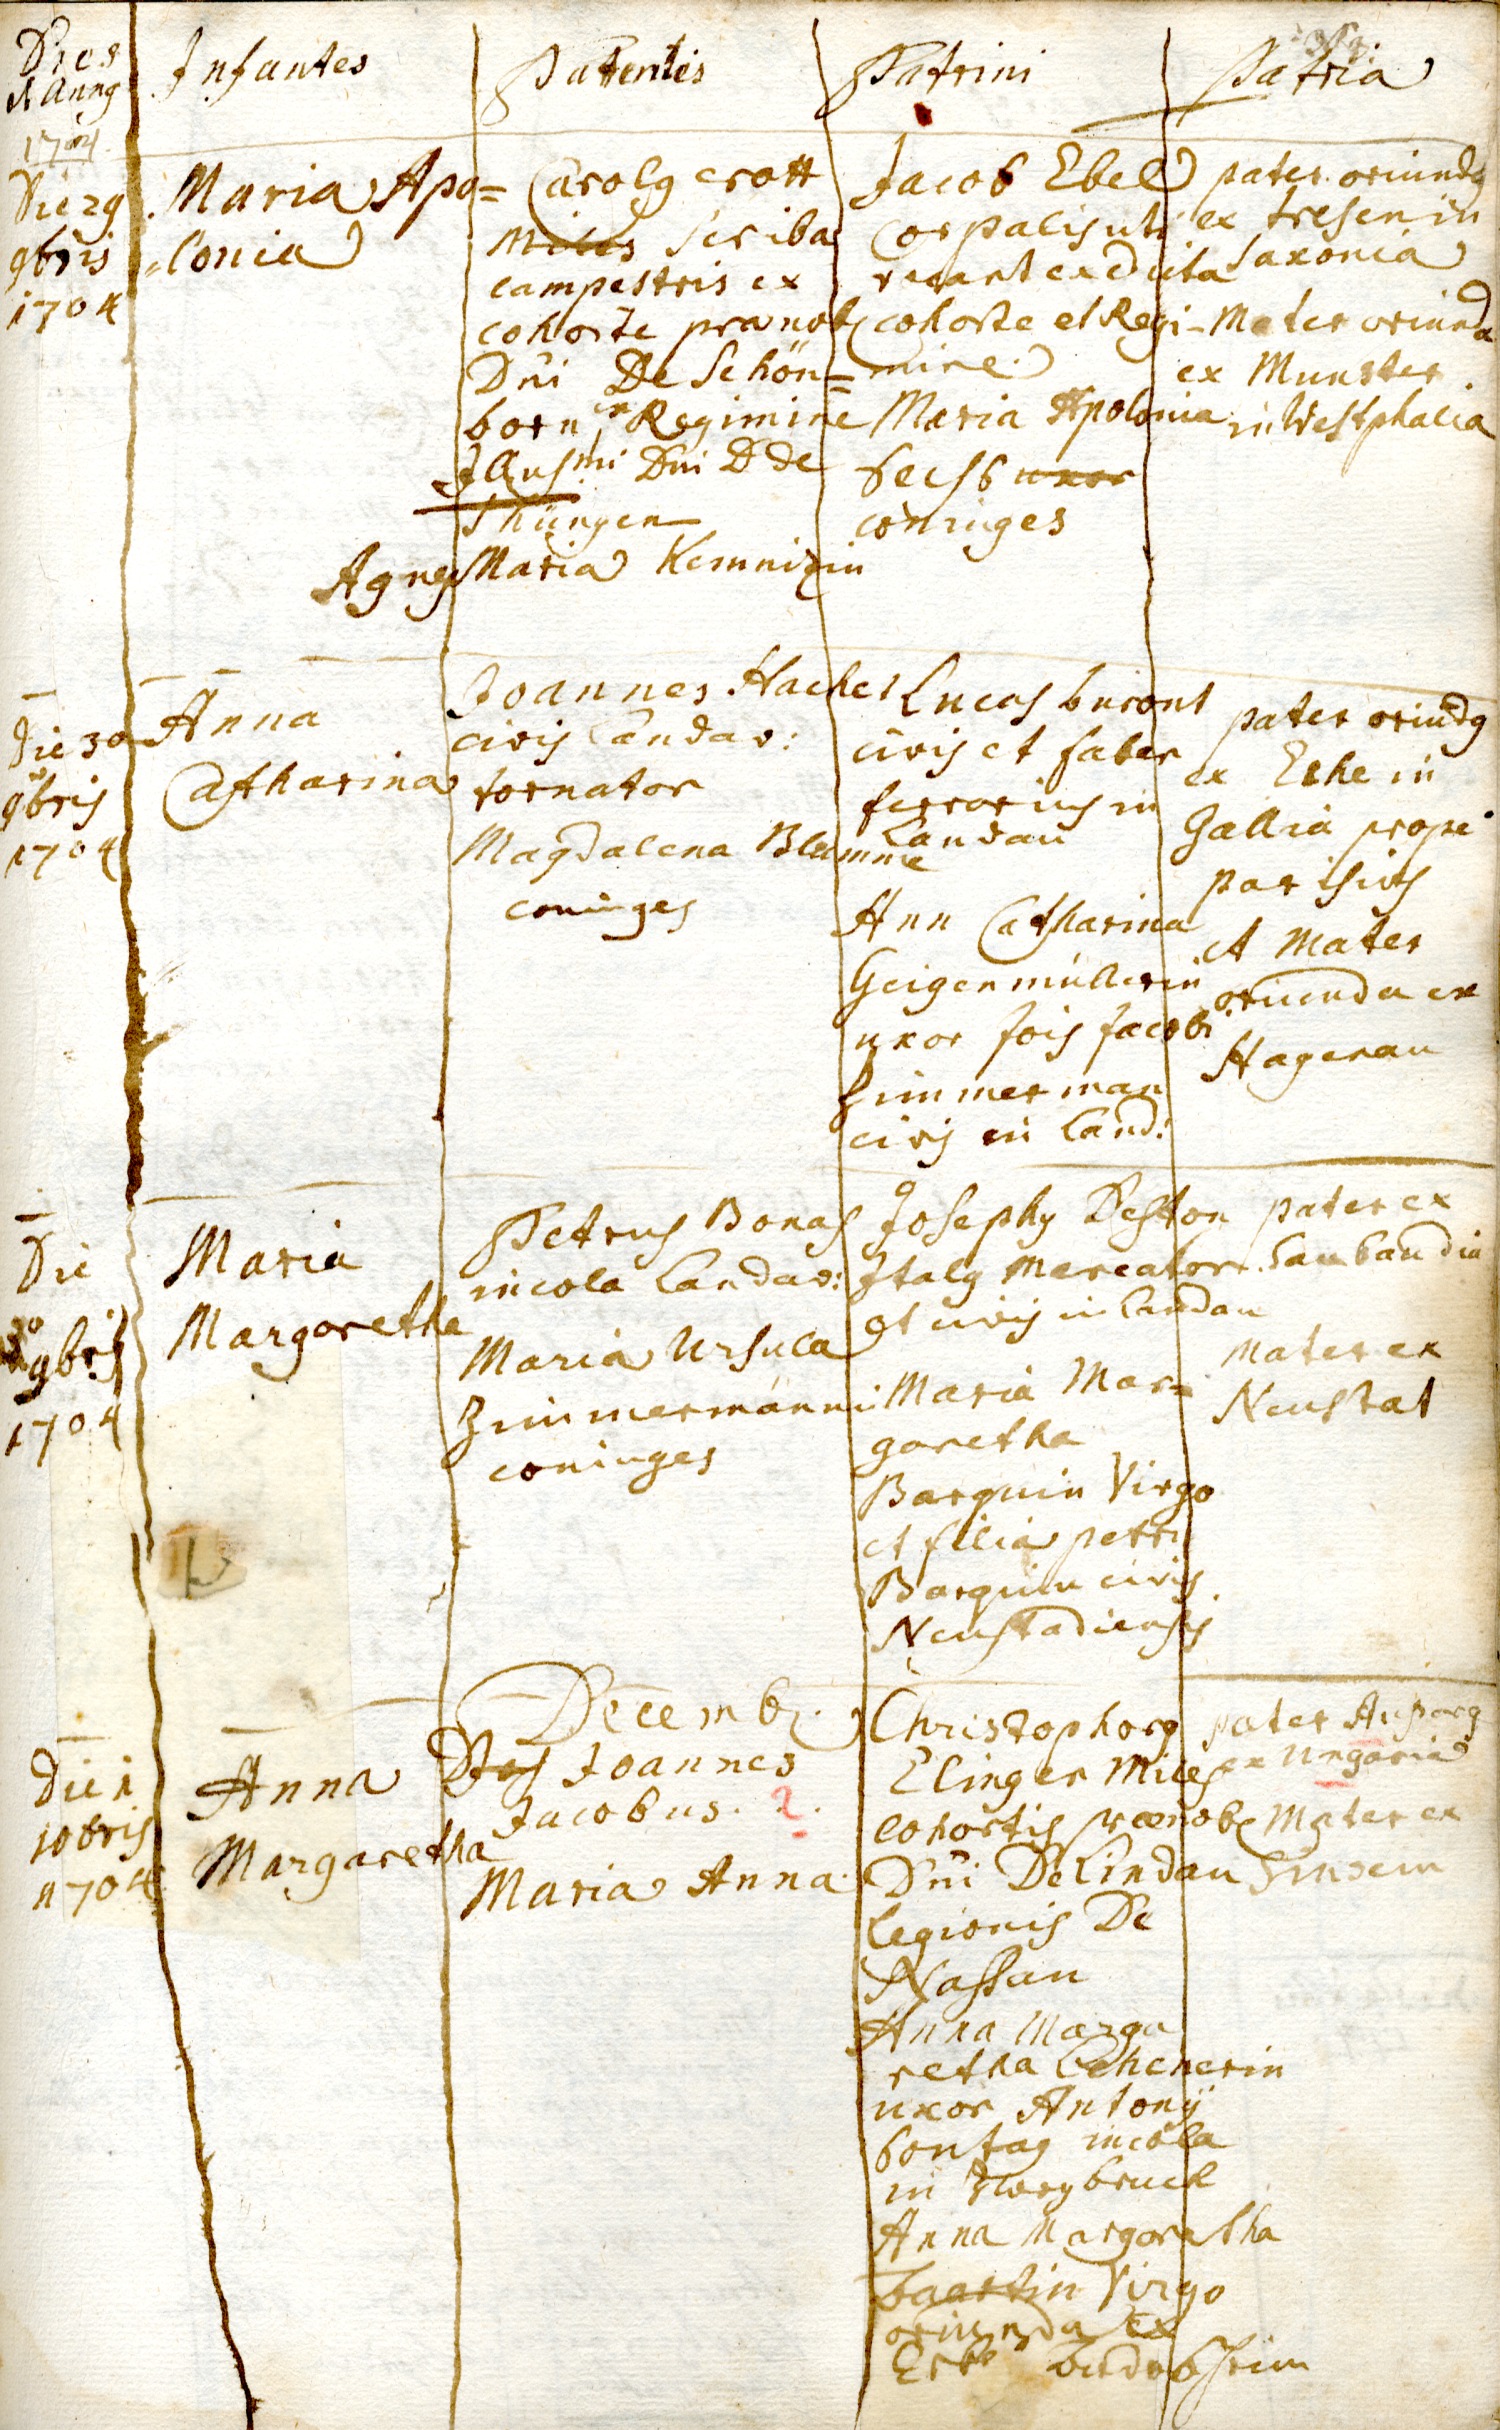 Dies
et Anng
1704
Infantes
Parentes
Patrini
Patria
Die 29
9bris
1704
Maria Apo=
=lonia
Carolg crott
Miles scriba
campestris ex
cohorte pranob
Dni De Schön=
born ex Regimine
Illusmi Dni D de
Thüngen
Agnes Maria Kemnizin
Jacob Ebel
Corpalis uti
vocant ex dicta
cohorte et Regi-
mine.
Maria Apolonia
uxor
coniuges
pater oriundg
ex tresen in
Saxonia
Mater oriunda
ex Munster
in Westphalia
Die 30
9bris
1704
Anna
Catharina
Joannes Hacket
civis Landav:
tornator
Magdalena Blumme
coniuges
Lucas buront
civis et faber
ferrarius in
Landau
Ann Catharina
Geigenmüllerin
uxor Jois Jacobi
Zimmerman
civis in Land:
pater oriundg
ex Eche in
Gallia prope
parisiis
et Mater
oriunda ex
Hagenau
Die
30
9bris
1704
Maria
Margaretha
Petrus Bonas
incola Landav:
Maria Ursula
Zimmermänni
coniuges
Josephg Deston
Italg Mercator
et civis in Landau
Maria Mar=
garetha
Barquin Virgo
et filia petri
Barquin civis
Neustadiensis
pater ex
Saubaudia
Mater ex
Neustat
Decemb.
Die 1
10bris
1704
Anna
Margaretha
Joannes
Jacobus. ?.
Maria Anna
Christophorg
Elinger Miles
cohortis prænob
Dni De Lindau
legionis De
Nassau
Anna Marga
retha Lehenerin
uxor Antonÿ
Sontag incola
in Zweybruck
Anna Margaretha
Virgo
oriunda ex
pater
ex Ungaria
Mater ex
Sinsem